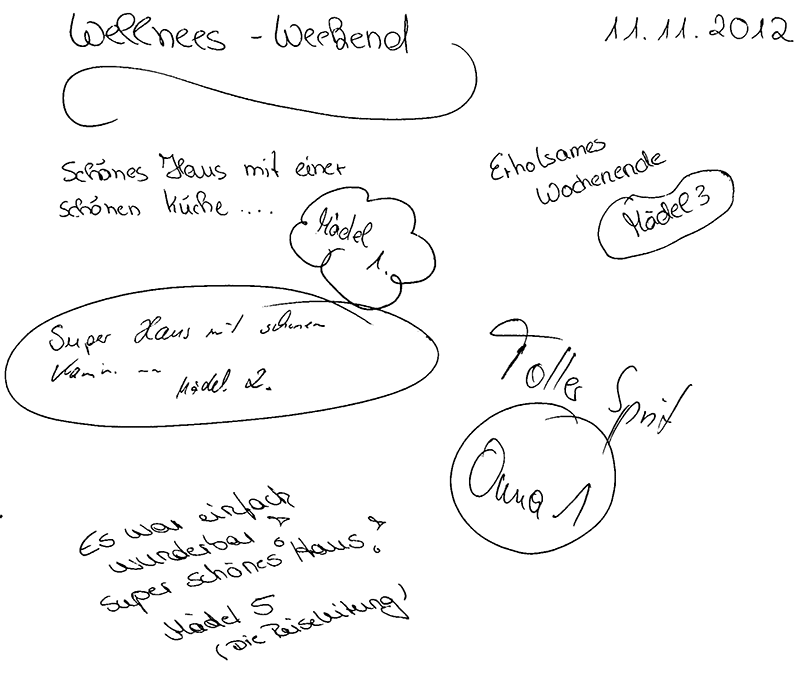 Wellnees - Weekend
11.11.2012
Schönes Haus mit einer
schönen Küche ....
Mädel
1.
Erholsames
Wochenende
Mädel 3
Super Haus mit schönen
Kamin. --
Mädel 2.
Toller Sprit
1
Es war einfach
wunderbar !
Super schönes Haus!
Mädel 5
(Die Reiseleitung)